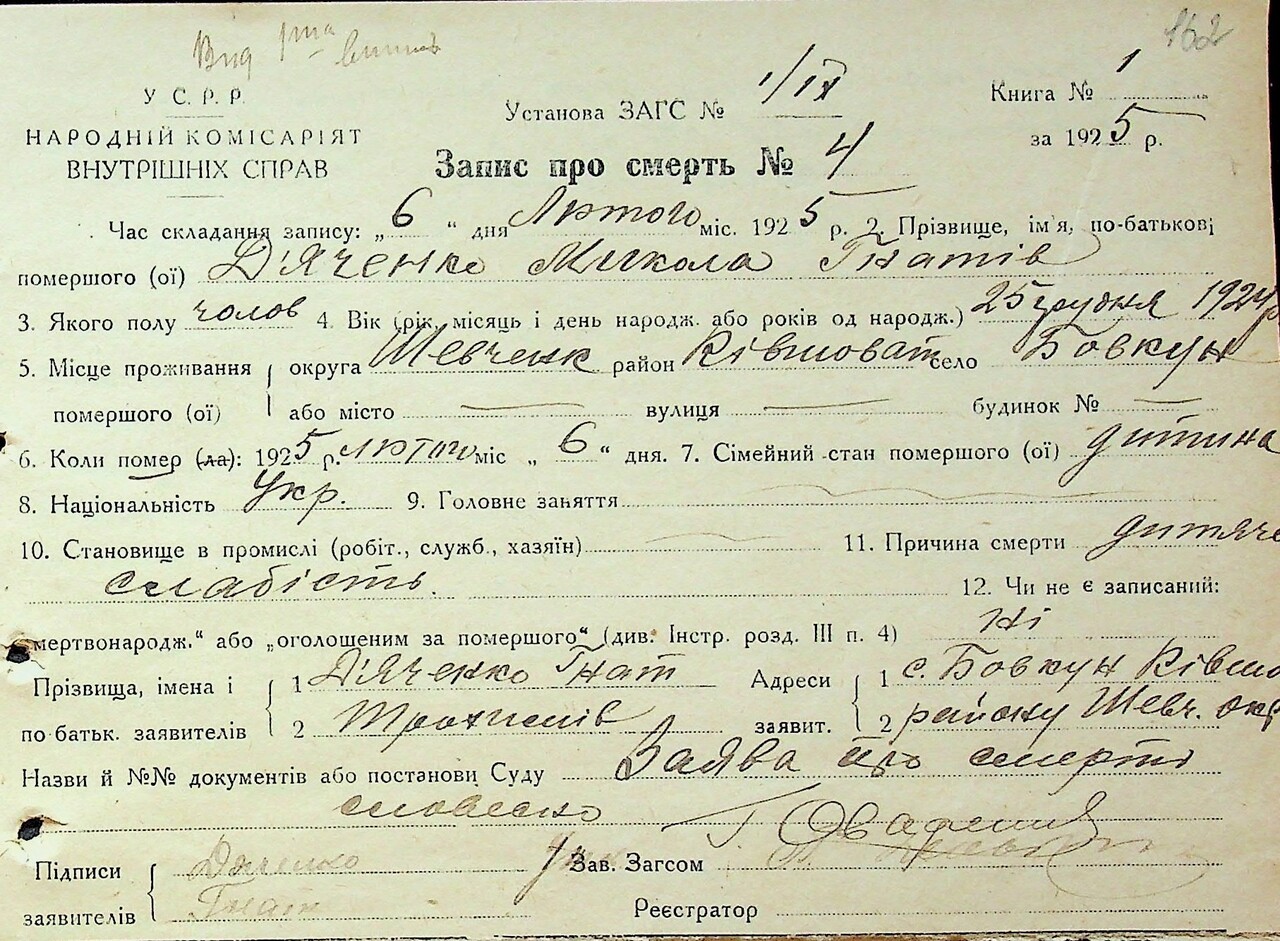 162
У С. Р. Р.
НАРОДНІЙ КОМІСАРІЯТ
ВНУТРІШНІХ СПРАВ
Установа ЗАГС № 1/IX
Книга № 1
за 1925 р.
Запис про смерть № 4
Час складання запису: „6“ дня Лютого міс. 1925 р. 2. Прізвище, ім'я, по-батькові
помершого (ої) Дяченко Микола Гнатів
3. Якого полу чолов 4. Вік (рік, місяць і день народж. або років од народж.) 25 грудня 1924 р
5. Місце проживання округа Шевченк район Ківшоват село Бовкун
помершого (ої) або місто — вулиця — будинок № —
6. Коли помер (ла): 1925 р. лютого міс „6“ дня. 7. Сімейний стан помершого (ої) дитина
8. Національність Укр. 9. Головне заняття
10. Становище в промислі (робіт., служб., хазяїн) 11. Причина смерти дитяче
слабість. 12. Чи не є записаний:
мертвонародж.“ або „оголошеним за помершого“ (див. Інстр. розд. III п. 4) Ні
Прізвища, імена і 1 Дяченко Гнат Адреси 1 с. Бовкун Ківшо
по батьк. заявителів 2 Трохимів заявит. 2 району Шевч. окр
Назви й №№ документів або постанови Суду Заява про смерть
словесно
Підписи Дяченко Зав. Загсом
заявителів Гнат Реєстратор